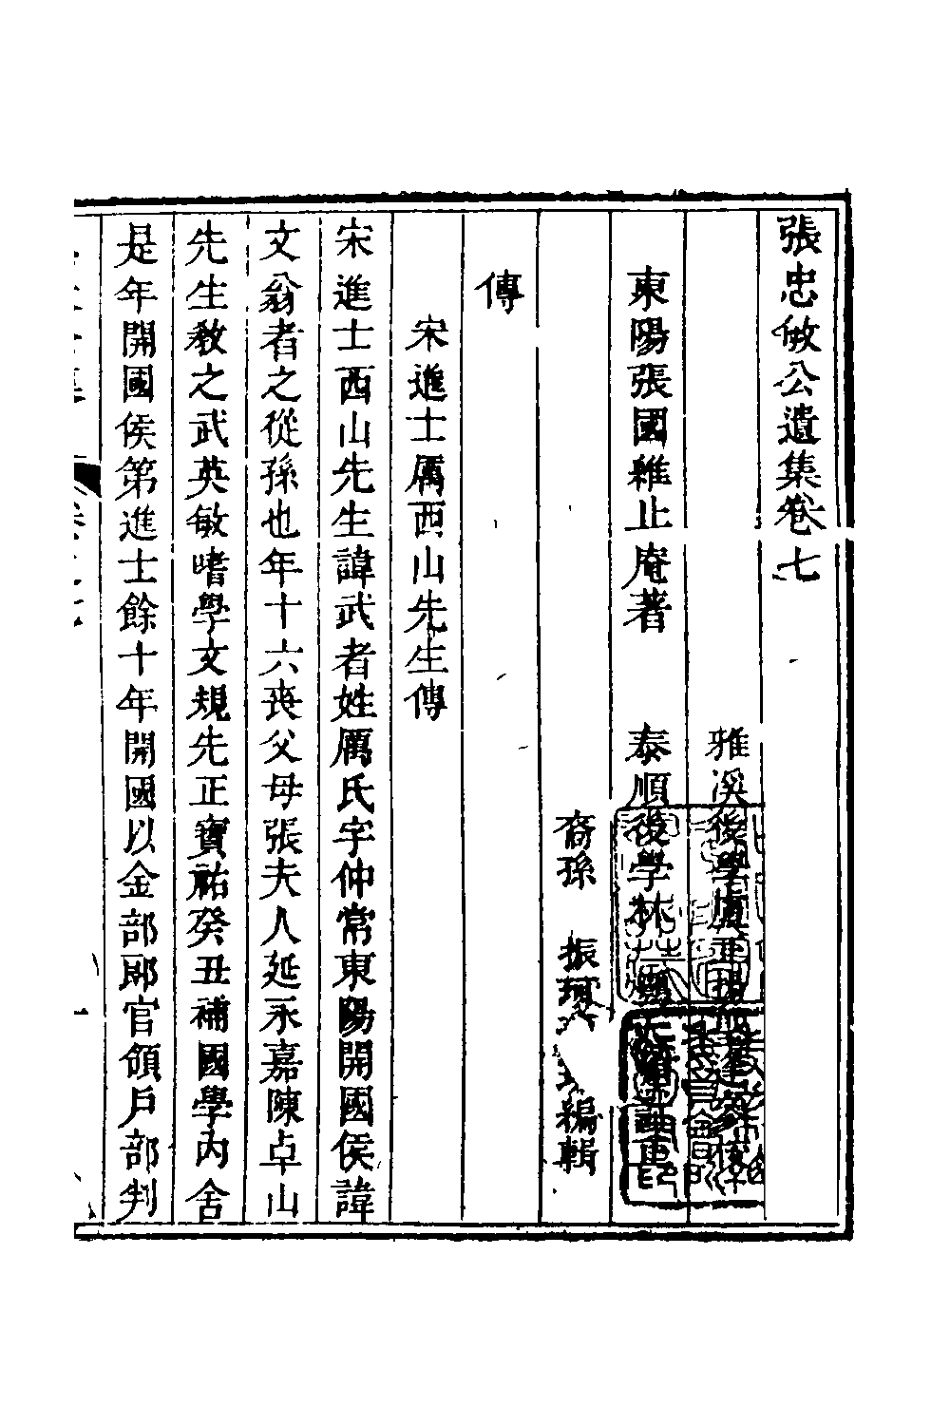 張忠敏公遺集卷七
雅溪後學盧
東陽張國維止庵著　泰順後學林鶚
裔孫　振珂　編輯
傳
宋進士厲西山先生傳
宋進士西山先生諱武者姓厲氏字仲常東陽開國侯諱
文翁者之從孫也年十六丧父母張夫人延永嘉陳卓山
先生敎之武英敏嗜學文規先正寶祐癸丑補國學內舍
是年開國侯第進士餘十年開國以金部郎官領戶部判